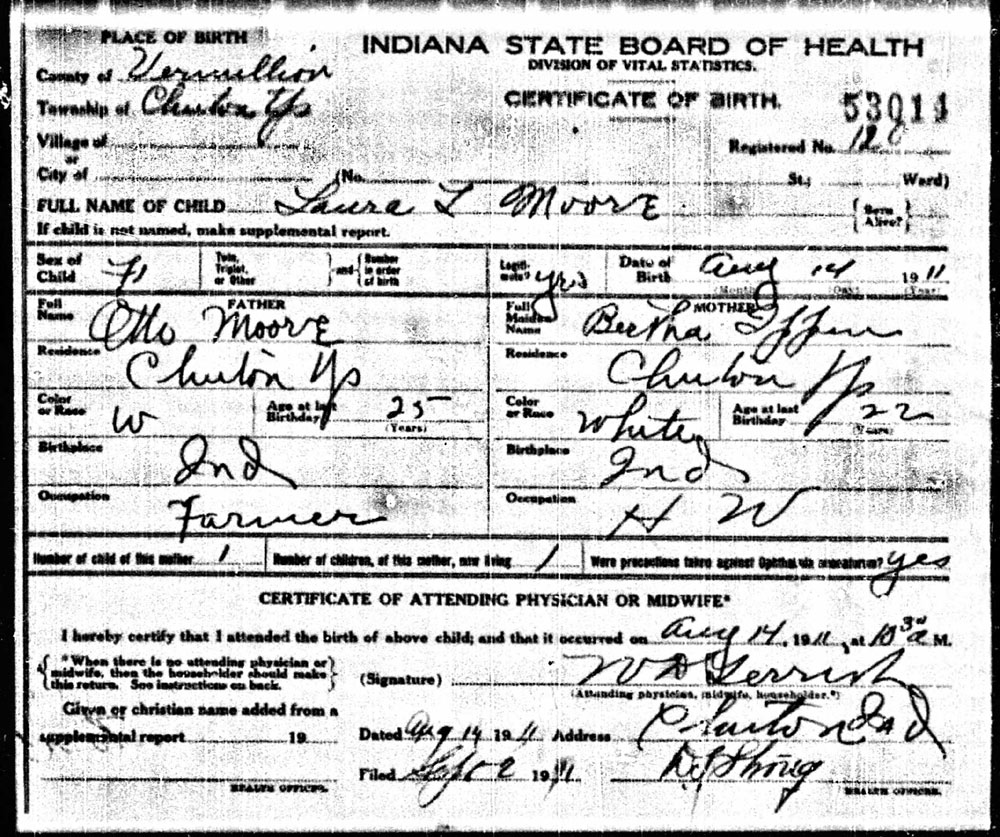 PLACE OF BIRTH
INDIANA STATE BOARD OF HEALTH
DIVISION OF VITAL STATISTICS.
County of Vermillion
CERTIFICATE OF BIRTH.
53014
Township of Clinton Tp
Village of
Registered No. 120
or
City of (No. St.; Ward)
FULL NAME OF CHILD Laura L Moore { Born Alive? }
If child is not named, make supplemental report.
Sex of Child F Twin, Triplet, or Other } and { Number in order of birth Legiti-mate? yes Date of Birth Aug 14 1911
(Month) (Day) (Year)
FATHER
Full Name Otto Moore
MOTHER
Full Maiden Name Bertha
Residence Clinton Tp
Residence Clinton Tp
Color or Race W Age at last Birthday 25 (Years)
Color or Race White Age at last Birthday 22 (Years)
Birthplace Ind
Birthplace Ind
Occupation Farmer
Occupation H W
Number of child of this mother 1 Number of children, of this mother, now living 1 Were precautions taken against Ophthalmia neonatorum? yes
CERTIFICATE OF ATTENDING PHYSICIAN OR MIDWIFE*
I hereby certify that I attended the birth of above child; and that it occurred on Aug 14, 1911, at 10 30 a M.
{ *When there is no attending physician or midwife, then the householder should make this return. See instructions on back. }
(Signature) W D Gerrish
(Attending physician, midwife, householder.*)
Given or christian name added from a
supplemental report 19
Dated Aug 14 1911 Address Clinton Ind
Filed Sep 2 1911
HEALTH OFFICER.
HEALTH OFFICER.